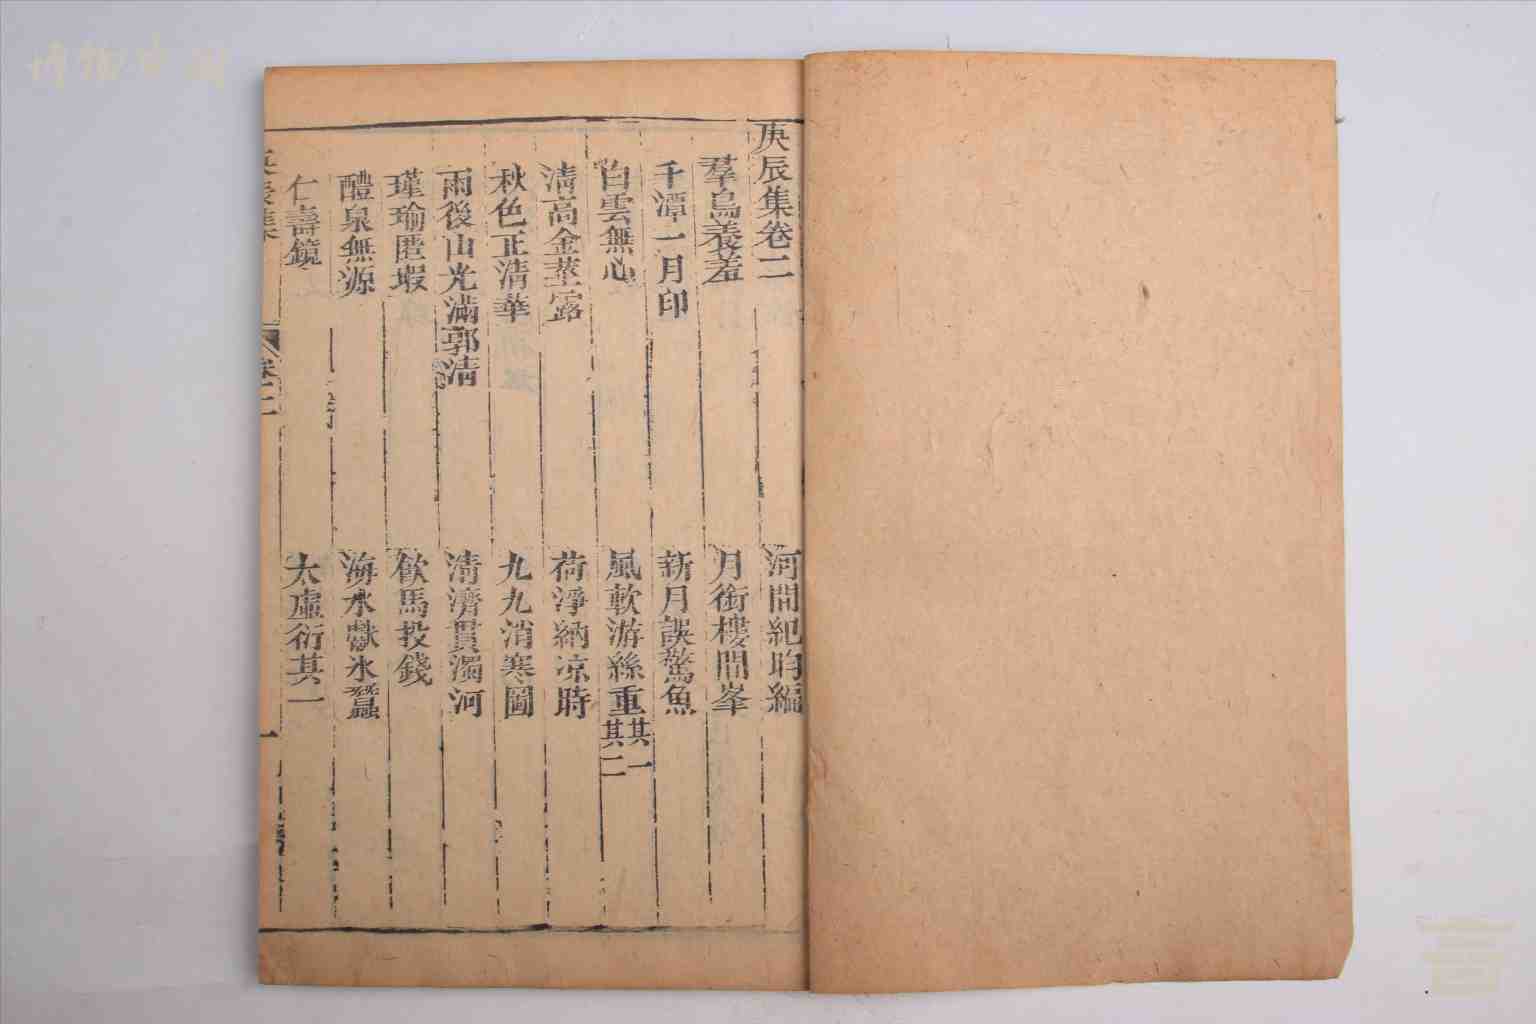 庚辰集卷二
河間紀昀編
羣烏養羞
月銜樓間峯
千潭一月印
新月誤驚魚
白雲無心
風軟游絲重其一其二
清高金莖露
荷淨納凉時
秋色正清華
九九消寒圖
雨後山光滿郭清
清濟貫濁河
瑾瑜匿瑕
飲馬投錢
醴泉無源
海水獻氷蠶
仁壽鏡
太虛衍其一
庚辰集
卷二
一
博物